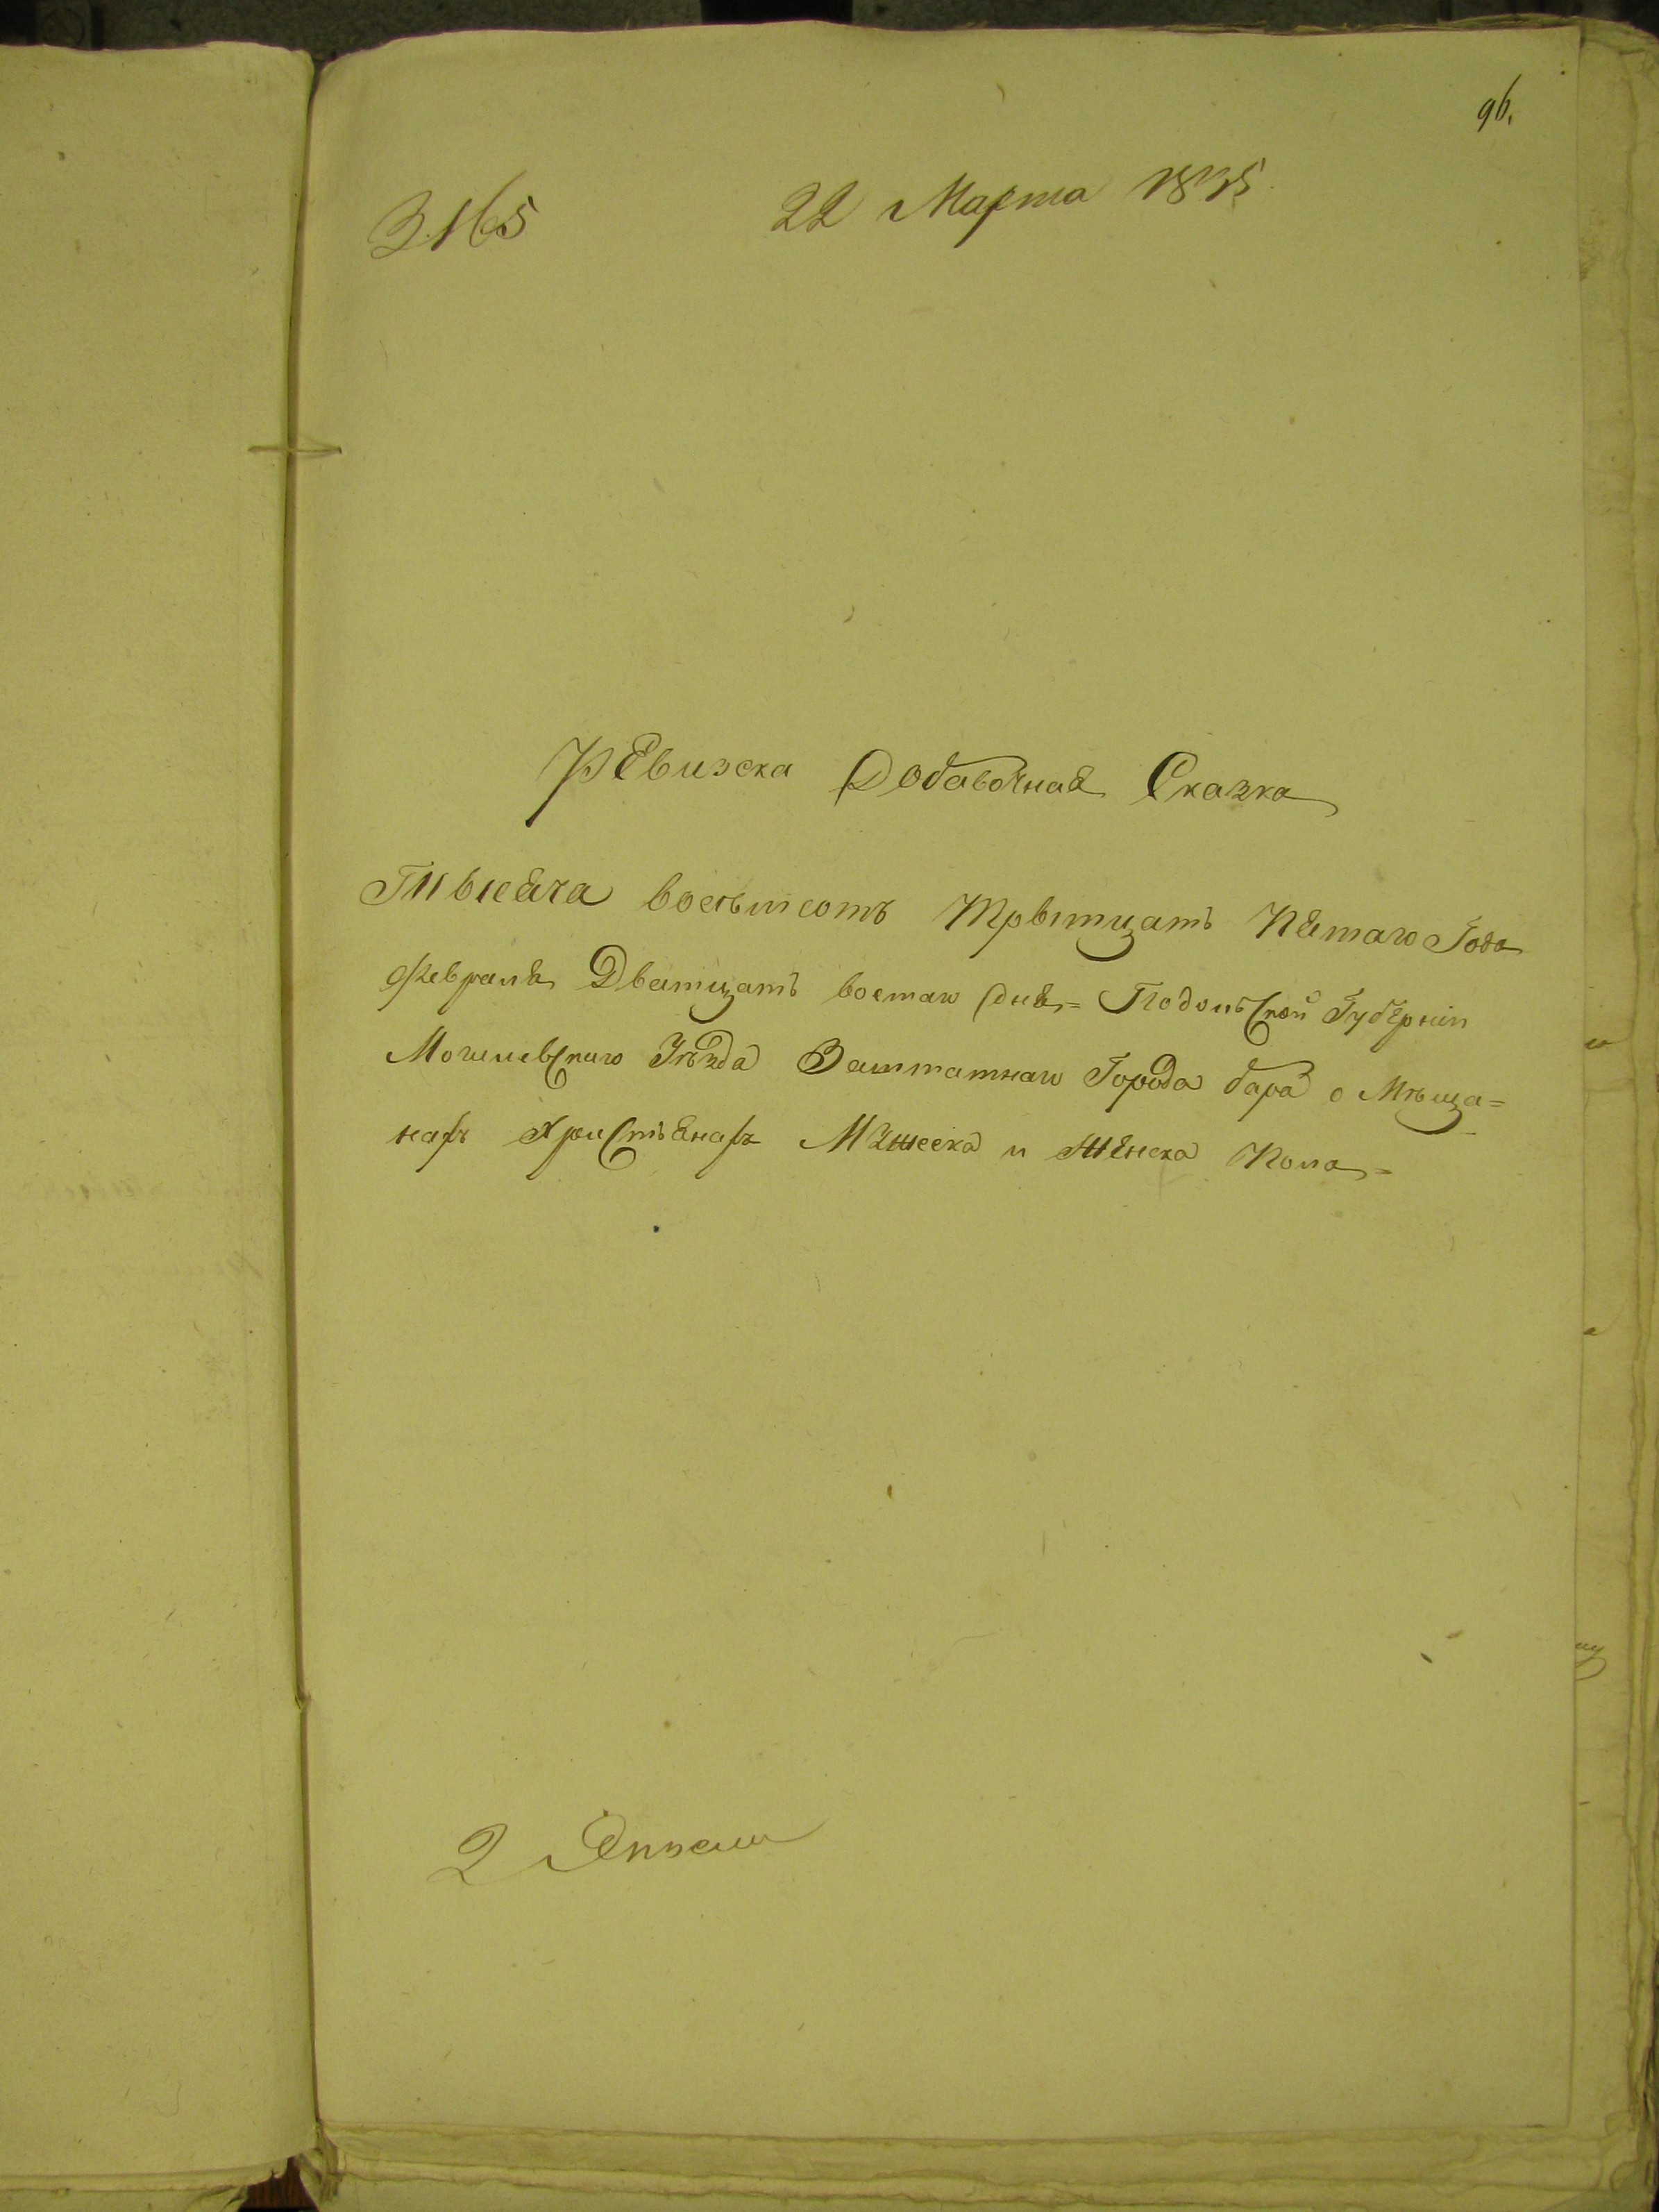 96.
3165 22 Марта 1835
Ревизска Добавочная Сказка
Тысяча восьмсотъ Трытцатъ Пятаго Года
Февраля Дватцатъ восмаго дня = Подольской Губернiи
Могилевскаго Уѣзда Заштатнаго Города бара о Мѣща=
нахъ Христьянахъ Мужеска и Женска Пола =
2